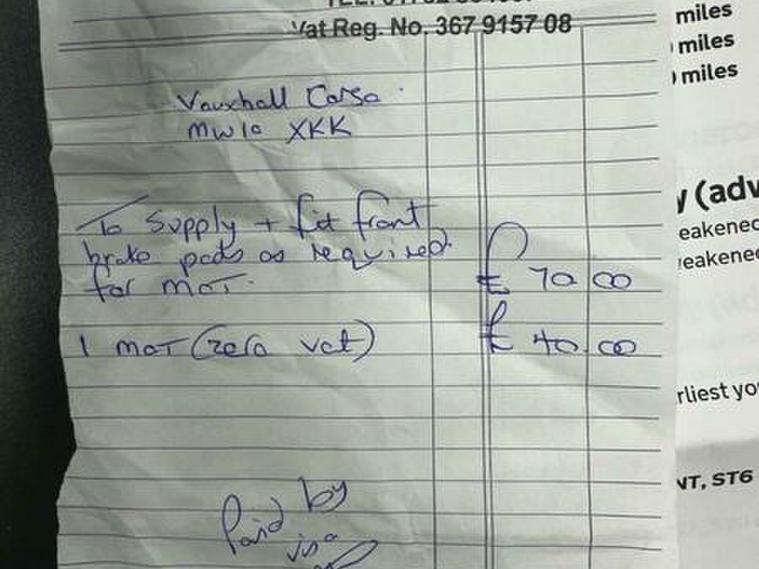 Vat Reg. No. 367 9157 08
Vauxhall Corsa
MW10 XKK
To supply + fit front
brake pads as required
for MOT.
£ 70.00
1 MOT (zero vat) £ 40.00
Paid by
visa
miles
miles
miles
y (adv
eakened
eakened
rliest you
NT, ST6